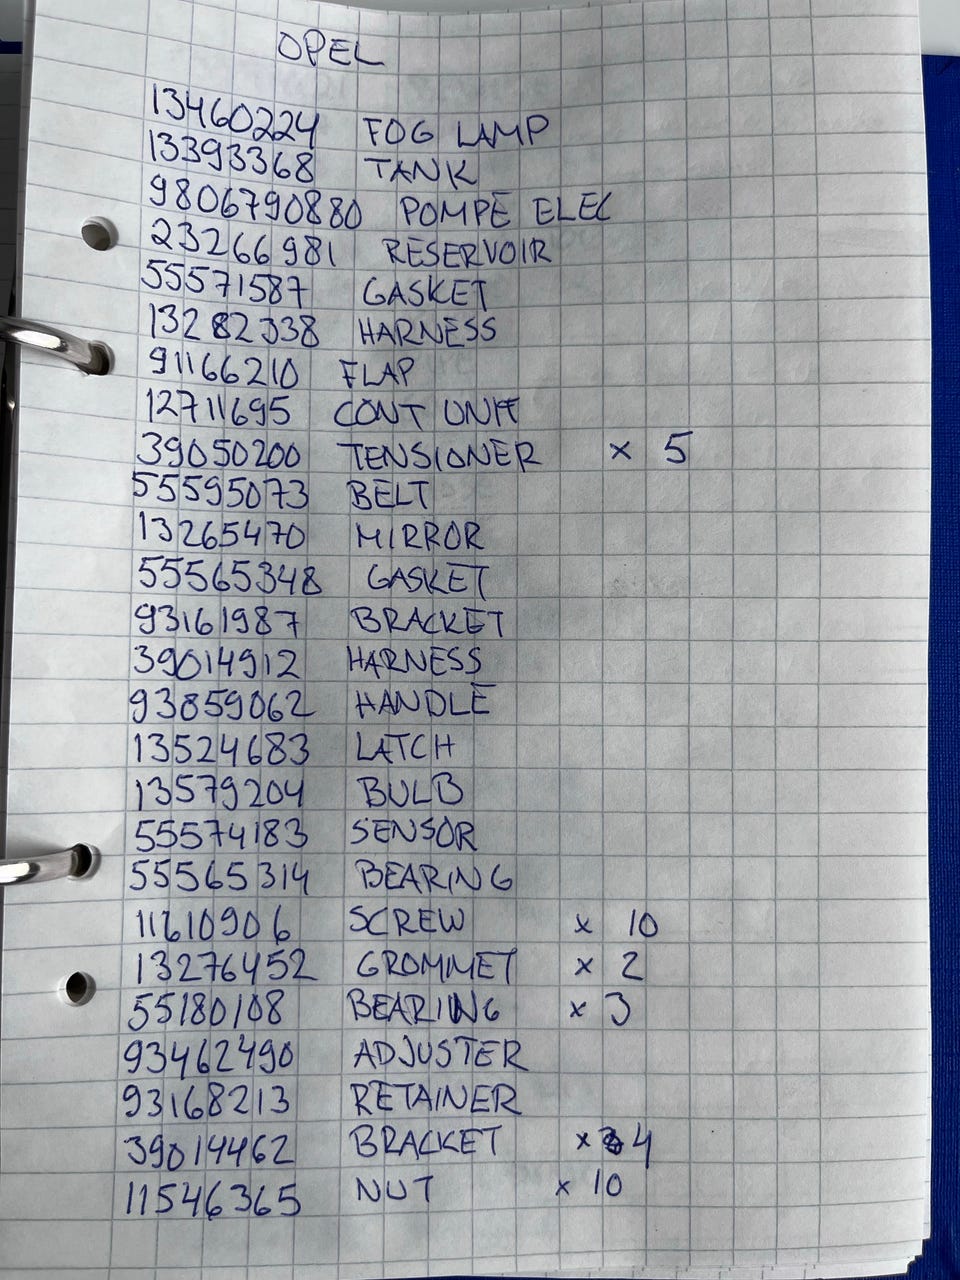 OPEL
13460224 FOG LAMP
13393368 TANK
9806790880 POMPE ELEC
23266981 RESERVOIR
55571587 GASKET
13282338 HARNESS
91166210 FLAP
12711695 CONT UNIT
39050200 TENSIONER x 5
55595073 BELT
13265470 MIRROR
55565348 GASKET
93161987 BRACKET
39014912 HARNESS
93859062 HANDLE
13524683 LATCH
13579204 BULB
55574183 SENSOR
55565314 BEARING
11610906 SCREW x 10
13276452 GROMMET x 2
55180108 BEARING x 3
93462490 ADJUSTER
93168213 RETAINER
39014462 BRACKET x 4
11546365 NUT x 10